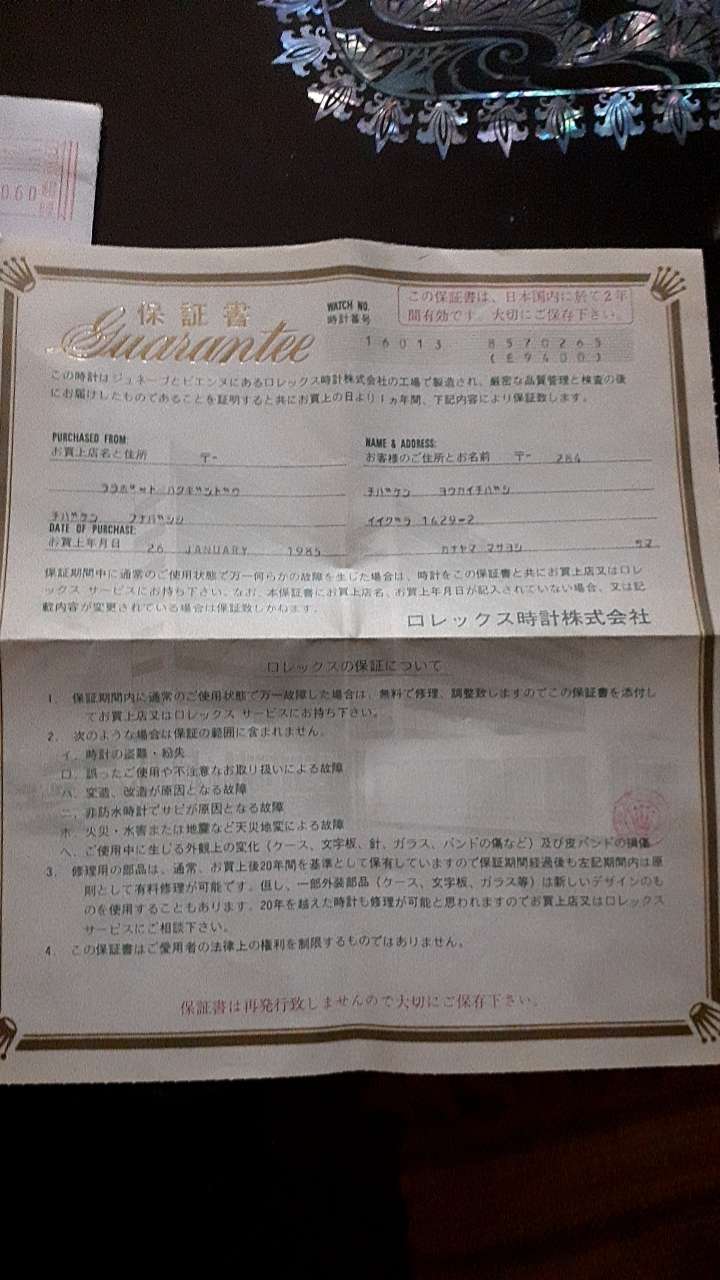 060
保証書
Guarantee
WATCH NO.
時計番号
この保証書は、日本国内に於て2年
間有効です。大切にご保存下さい。
16013 8570265
(E9400)
この時計はジュネーブとビエンヌにあるロレックス時計株式会社の工場で製造され、厳密な品質管理と検査の後
にお届けしたものであることを証明すると共にお買上の日より1ヵ年間、下記内容により保証致します。
PURCHASED FROM:
お買上店名と住所 〒-
ララポート ハクギンドウ
チバケン フナバシシ
DATE OF PURCHASE:
お買上年月日 26 JANUARY 1985
NAME & ADDRESS:
お客様のご住所とお名前 〒- 284
チバケン ヨウカイチバシ
イイグラ 1629-2
カナヤマ マサヨシ サマ
保証期間中に通常のご使用状態で万一何らかの故障を生じた場合は、時計をこの保証書と共にお買上店又はロレ
ックス サービスにお持ち下さい。なお、本保証書にお買上店名、お買上年月日が記入されていない場合、又は記
載内容が変更されている場合は保証致しかねます。
ロレックス時計株式会社
ロレックスの保証について
1. 保証期間内に通常のご使用状態で万一故障した場合は、無料で修理、調整致しますのでこの保証書を添付し
てお買上店又はロレックス サービスにお持ち下さい。
2. 次のような場合は保証の範囲に含まれません。
イ. 時計の盗難・紛失
ロ. 誤ったご使用や不注意なお取り扱いによる故障
ハ. 変造、改造が原因となる故障
ニ. 非防水時計でサビが原因となる故障
ホ. 火災・水害または地震など天災地変による故障
ヘ. ご使用中に生じる外観上の変化(ケース、文字板、針、ガラス、バンドの傷など)及び皮バンドの損傷
3. 修理用の部品は、通常、お買上後20年間を基準として保有していますので保証期間経過後も左記期間内は原
則として有料修理が可能です。但し、一部外装部品(ケース、文字板、ガラス等)は新しいデザインのも
のを使用することもあります。20年を越えた時計も修理が可能と思われますのでお買上店又はロレックス
サービスにご相談下さい。
4. この保証書はご愛用者の法律上の権利を制限するものではありません。
保証書は再発行致しませんので大切にご保存下さい。